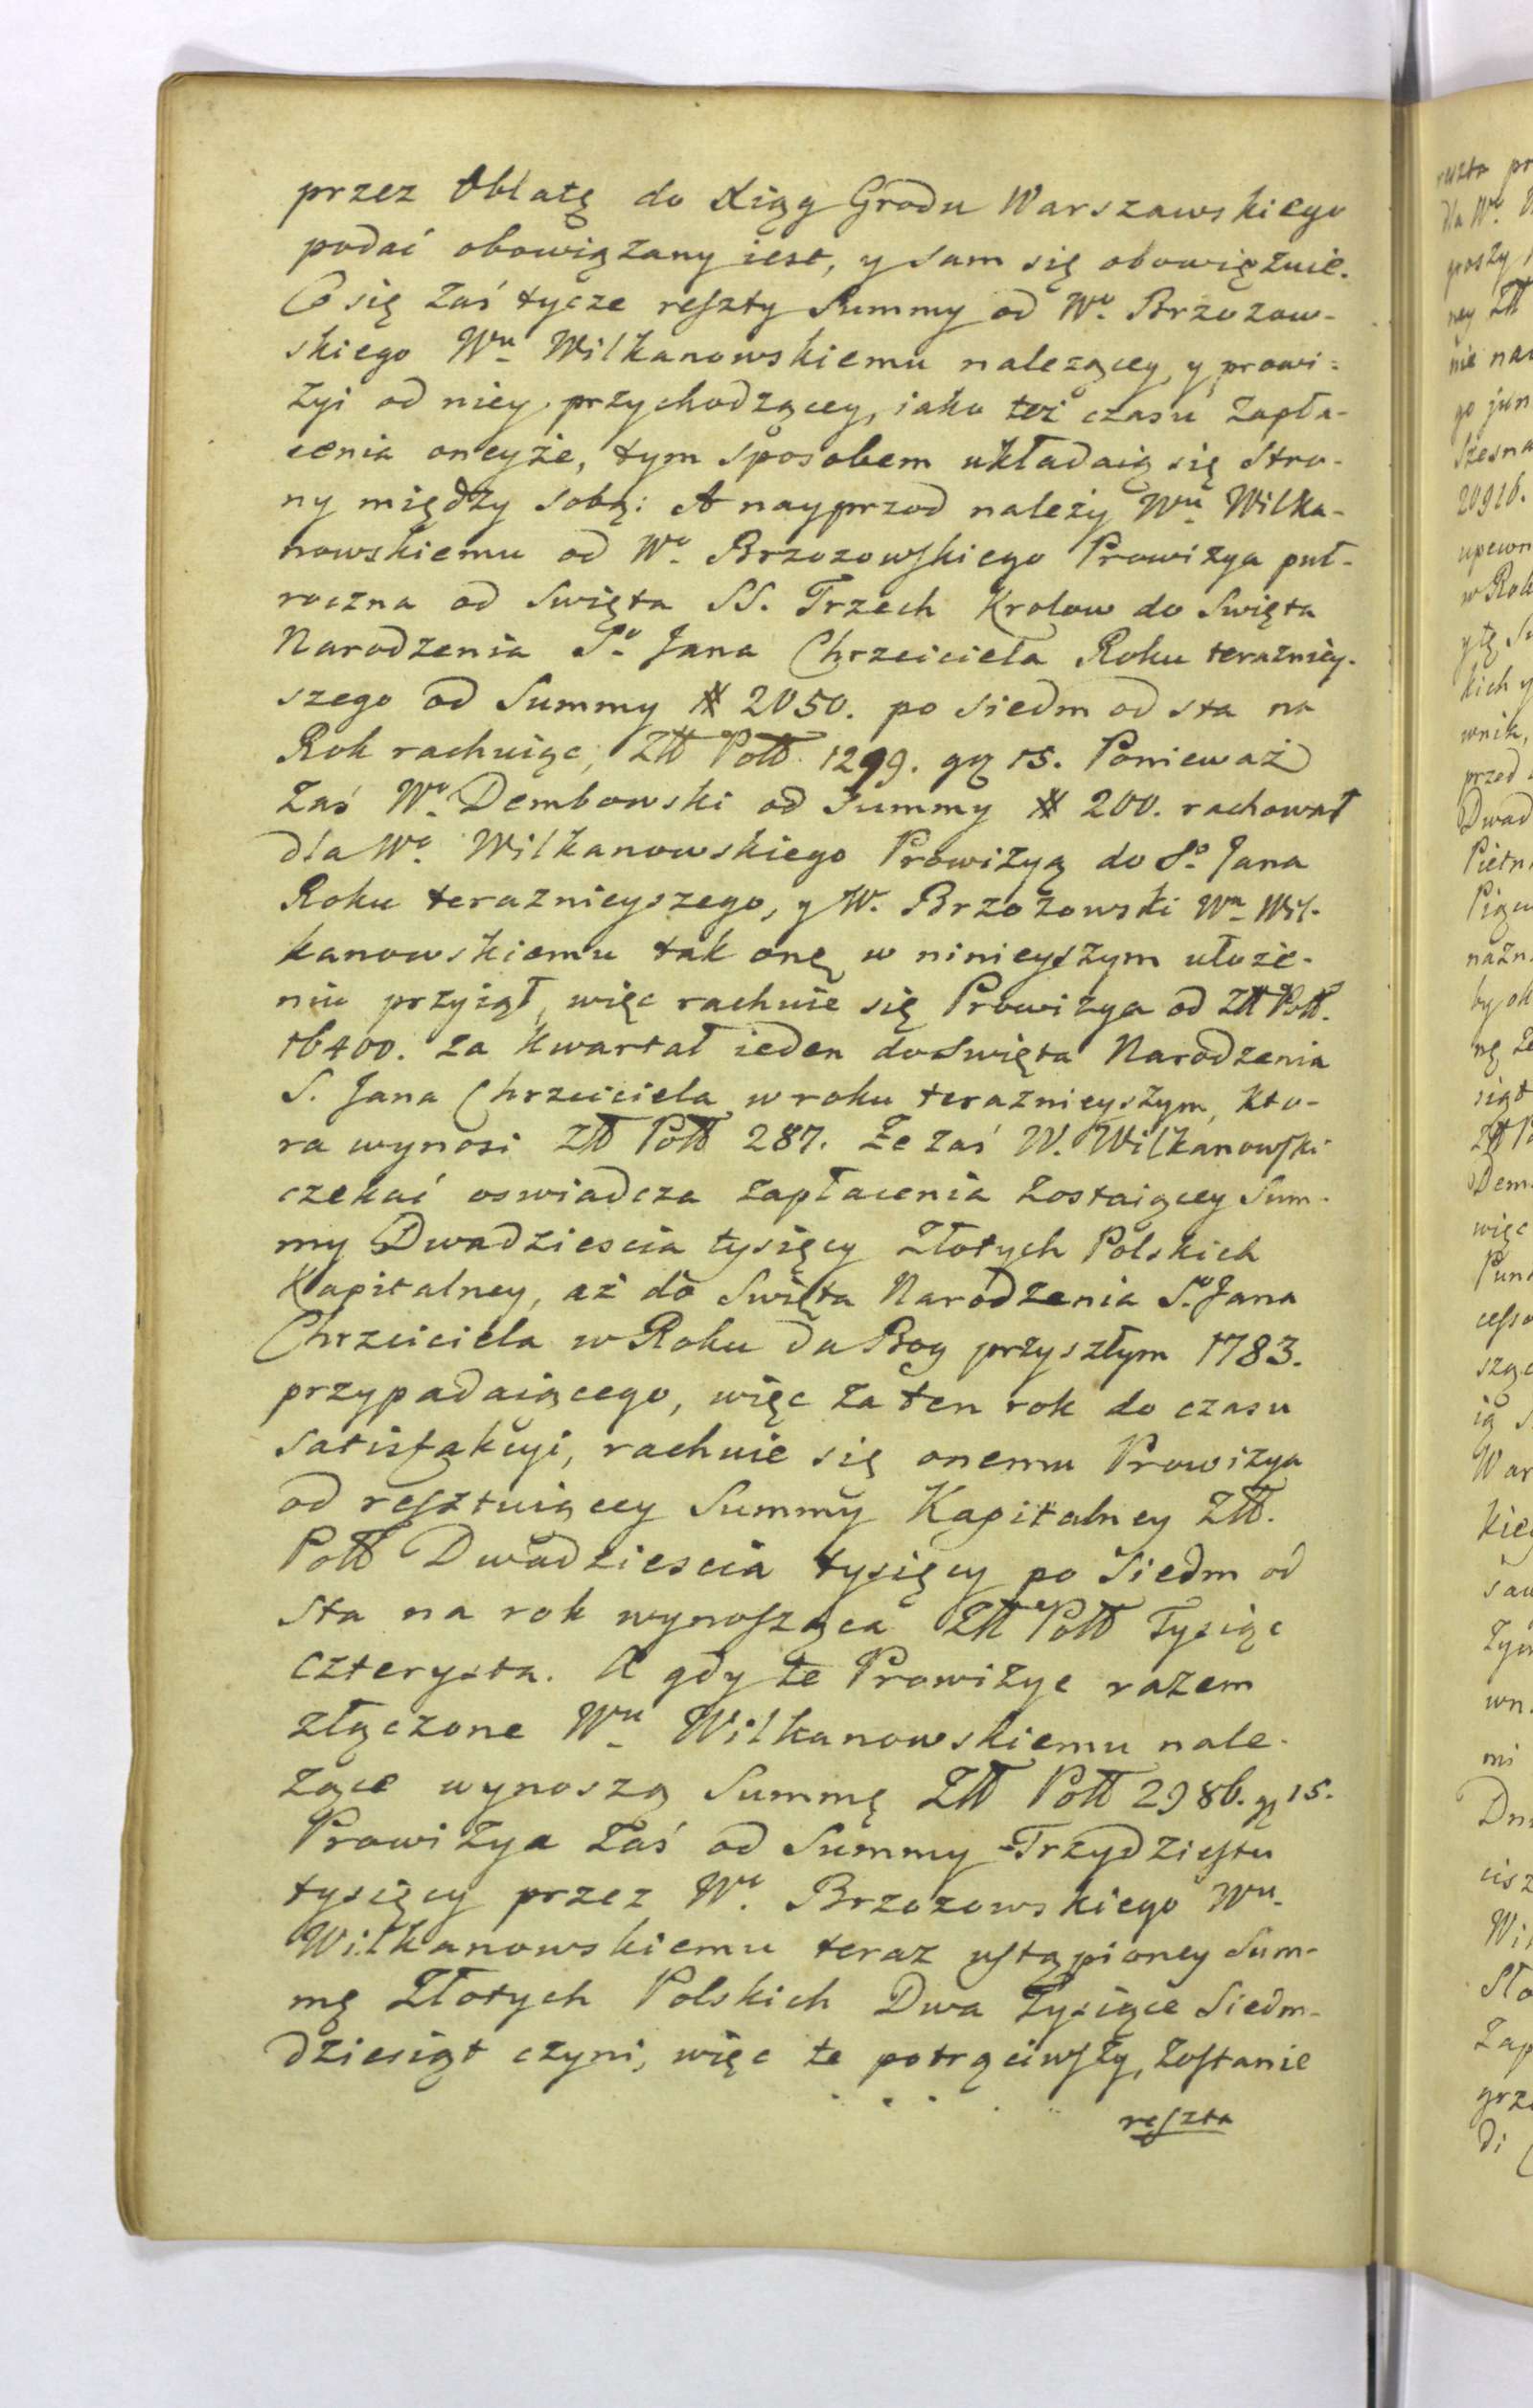 przez Oblatę do Xiąg Grodu Warszawskiego
podać obowiązany iest, y sam się obowięzuie.
Co się zaś tycze reszty Summy od Wo. Brzozow-
skiego Wu. Wilkanowskiemu należącey, y prowi-
zyi od niey przychodzącey, iako też czasu zapła-
cenia oneyże, tym sposobem układaią się Stro-
ny między sobą: A nayprzod należy Wu. Wilka-
nowskiemu od Wo. Brzozowskiego Prowizya puł-
roczna od Swięta SS. Trzech Krolow do Swięta
Narodzenia So. Jana Chrzciciela Roku teraźniey-
szego od Summy # 2050. po siedm od sta na
Rok rachuiąc, Złł Poll. 1299. gg 15. Ponieważ
zaś Wo. Dembowski od Summy # 200. rachował
dla Wo. Wilkanowskiego Prowizyą do So. Jana
Roku teraznieyszego, y W. Brzozowski Wu. Wil-
kanowskiemu tak onę w ninieyszym ułoże-
niu przyiął, więc rachuie się Prowizya od Złł Poll.
16400. za kwartał ieden do Swięta Narodzenia
S. Jana Chrzciciela w roku teraznieyszym, kto-
ra wynosi Złł Poll 287. Że zaś W. Wilkanowski
czekać oswiadcza zapłacenia zostaiącey Sum-
my Dwadziescia tysięcy Złotych Polskich
Kapitalney, aż do Swięta Narodzenia So. Jana
Chrzciciela w Roku da Bog przyszłym 1783.
przypadaiącego, więc za ten rok do czasu
satisfakcyi, rachuie się onemu Prowizya
od resztuiącey Summy Kapitalney Złł.
Poll Dwadziescia tysięcy po siedm od
sta na rok wynosząca Złł Poll Tysiąc
czterysta. A gdy te Prowizye razem
złączone Wu. Wilkanowskiemu nale-
żące wynoszą Summę Złł Poll 2986. gg 15.
Prowizya zaś od Summy Trzydziestu
tysięcy przez Wo. Brzozowskiego Wu.
Wilkanowskiemu teraz ustąpioney Sum-
mę Złotych Polskich Dwa Tysiące Siedm-
dziesiąt czyni, więc te potrąciwszy, zostanie
reszta